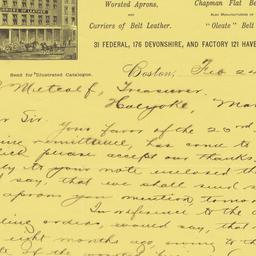 Worsted Aprons,
Chapman Flat Be
CURRIERS OF LEATHER
AND
ALSO MANUFACTURERS OF
Curriers of Belt Leather.
"Oleate" Belt
31 FEDERAL, 176 DEVONSHIRE, AND FACTORY 121 HAVE
Send for Illustrated Catalogue.
Boston, Feb 24
Metcalf, Treasurer
Holyoke, Mas
r Sir.
Your favor of the 23rd
ing remittance, has come to
please accept our thanks
ly to your note enclosed th
say, that we shall send
aprons you mention, tomor
In reference to the
ing orders, would say, that
eight months ago, owing to th
of the